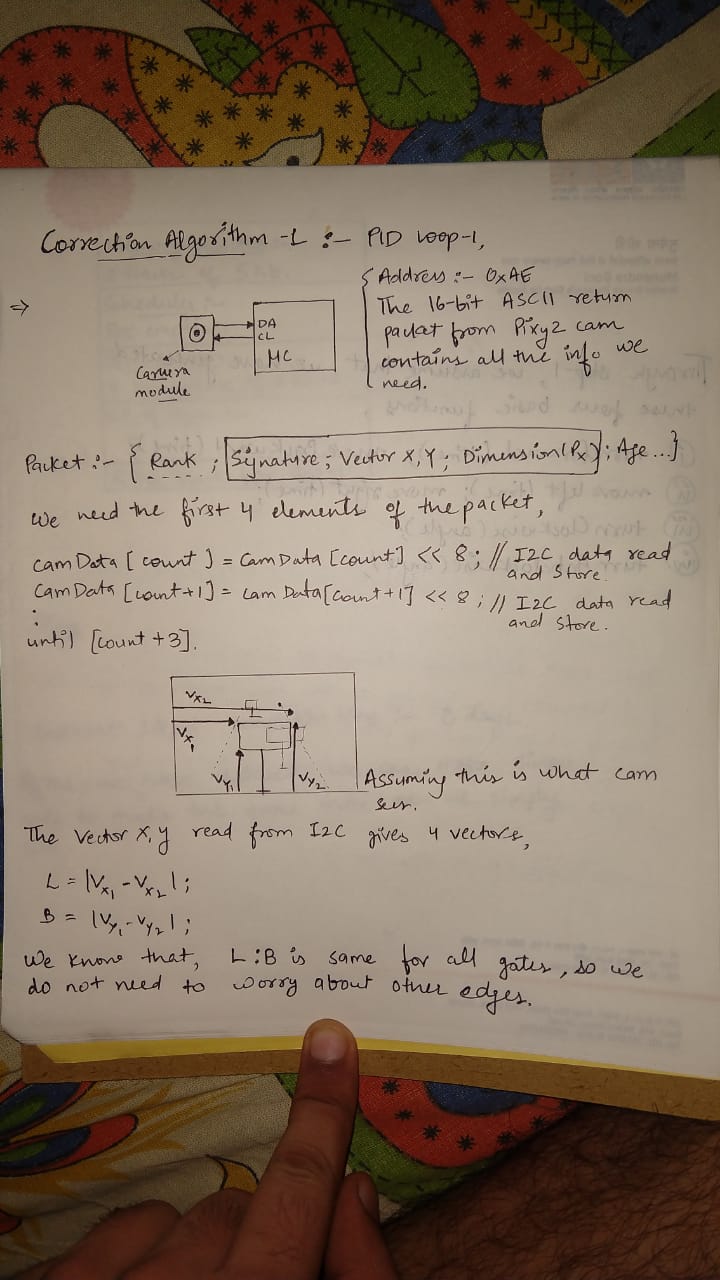 Correction Algorithm -1 :- PID Loop-1,
⇒
Address :- 0xAE
The 16-bit ASCII return
packet from Pixy2 cam
contains all the info we
need.
DA
CL
MC
Camera
module
Packet :- { Rank ; Signature ; Vector X, Y ; Dimension (Px) ; Age ...}
We need the first 4 elements of the packet,
cam Data [ count ] = Cam Data [count] << 8 ; // I2C data read
and store.
Cam Data [count+1] = Cam Data [count+1] << 8 ; // I2C data read
and store.
:
until [count +3].
Vx2
Vx1
Vy1
Vy2
Assuming this is what cam
sees.
The Vector X, y read from I2C gives 4 vectors,
L = |Vx1 - Vx2| ;
B = |Vy1 - Vy2| ;
We know that, L:B is same for all gates, so we
do not need to worry about other edges.